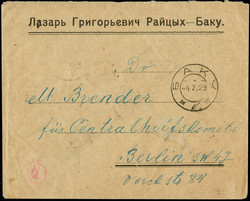 Лазарь Григорьевич Райцых—Баку.
БАКУ
-4.7.23
Dr
M. Brender
für Centralhilfskomite
Berlin SW 47
Yorckstr 84